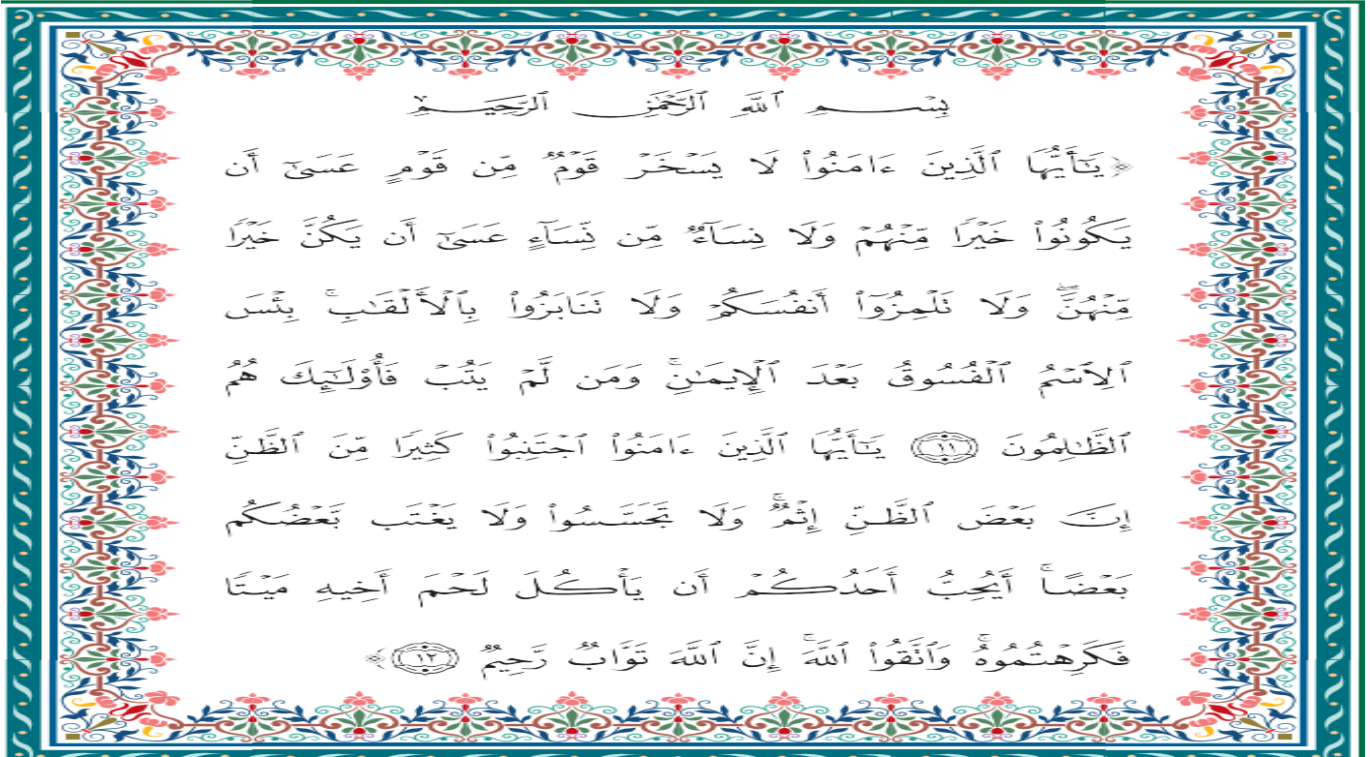 بِسْمِ ٱللَّهِ ٱلرَّحْمَٰنِ ٱلرَّحِيمِ
﴿يَـٰٓأَيُّهَا ٱلَّذِينَ ءَامَنُوا۟ لَا يَسْخَرْ قَوْمٌ مِّن قَوْمٍ عَسَىٰٓ أَن
يَكُونُوا۟ خَيْرًا مِّنْهُمْ وَلَا نِسَآءٌ مِّن نِّسَآءٍ عَسَىٰٓ أَن يَكُنَّ خَيْرًا
مِّنْهُنَّ ۖ وَلَا تَلْمِزُوٓا۟ أَنفُسَكُمْ وَلَا تَنَابَزُوا۟ بِٱلْأَلْقَـٰبِ ۚ بِئْسَ
ٱلِٱسْمُ ٱلْفُسُوقُ بَعْدَ ٱلْإِيمَـٰنِ ۚ وَمَن لَّمْ يَتُبْ فَأُو۟لَـٰٓئِكَ هُمُ
ٱلظَّـٰلِمُونَ ١١ يَـٰٓأَيُّهَا ٱلَّذِينَ ءَامَنُوا۟ ٱجْتَنِبُوا۟ كَثِيرًا مِّنَ ٱلظَّنِّ
إِنَّ بَعْضَ ٱلظَّنِّ إِثْمٌ ۖ وَلَا تَجَسَّسُوا۟ وَلَا يَغْتَب بَّعْضُكُم
بَعْضًا ۚ أَيُحِبُّ أَحَدُكُمْ أَن يَأْكُلَ لَحْمَ أَخِيهِ مَيْتًا
فَكَرِهْتُمُوهُ ۚ وَٱتَّقُوا۟ ٱللَّهَ ۚ إِنَّ ٱللَّهَ تَوَّابٌ رَّحِيمٌ ١٢﴾